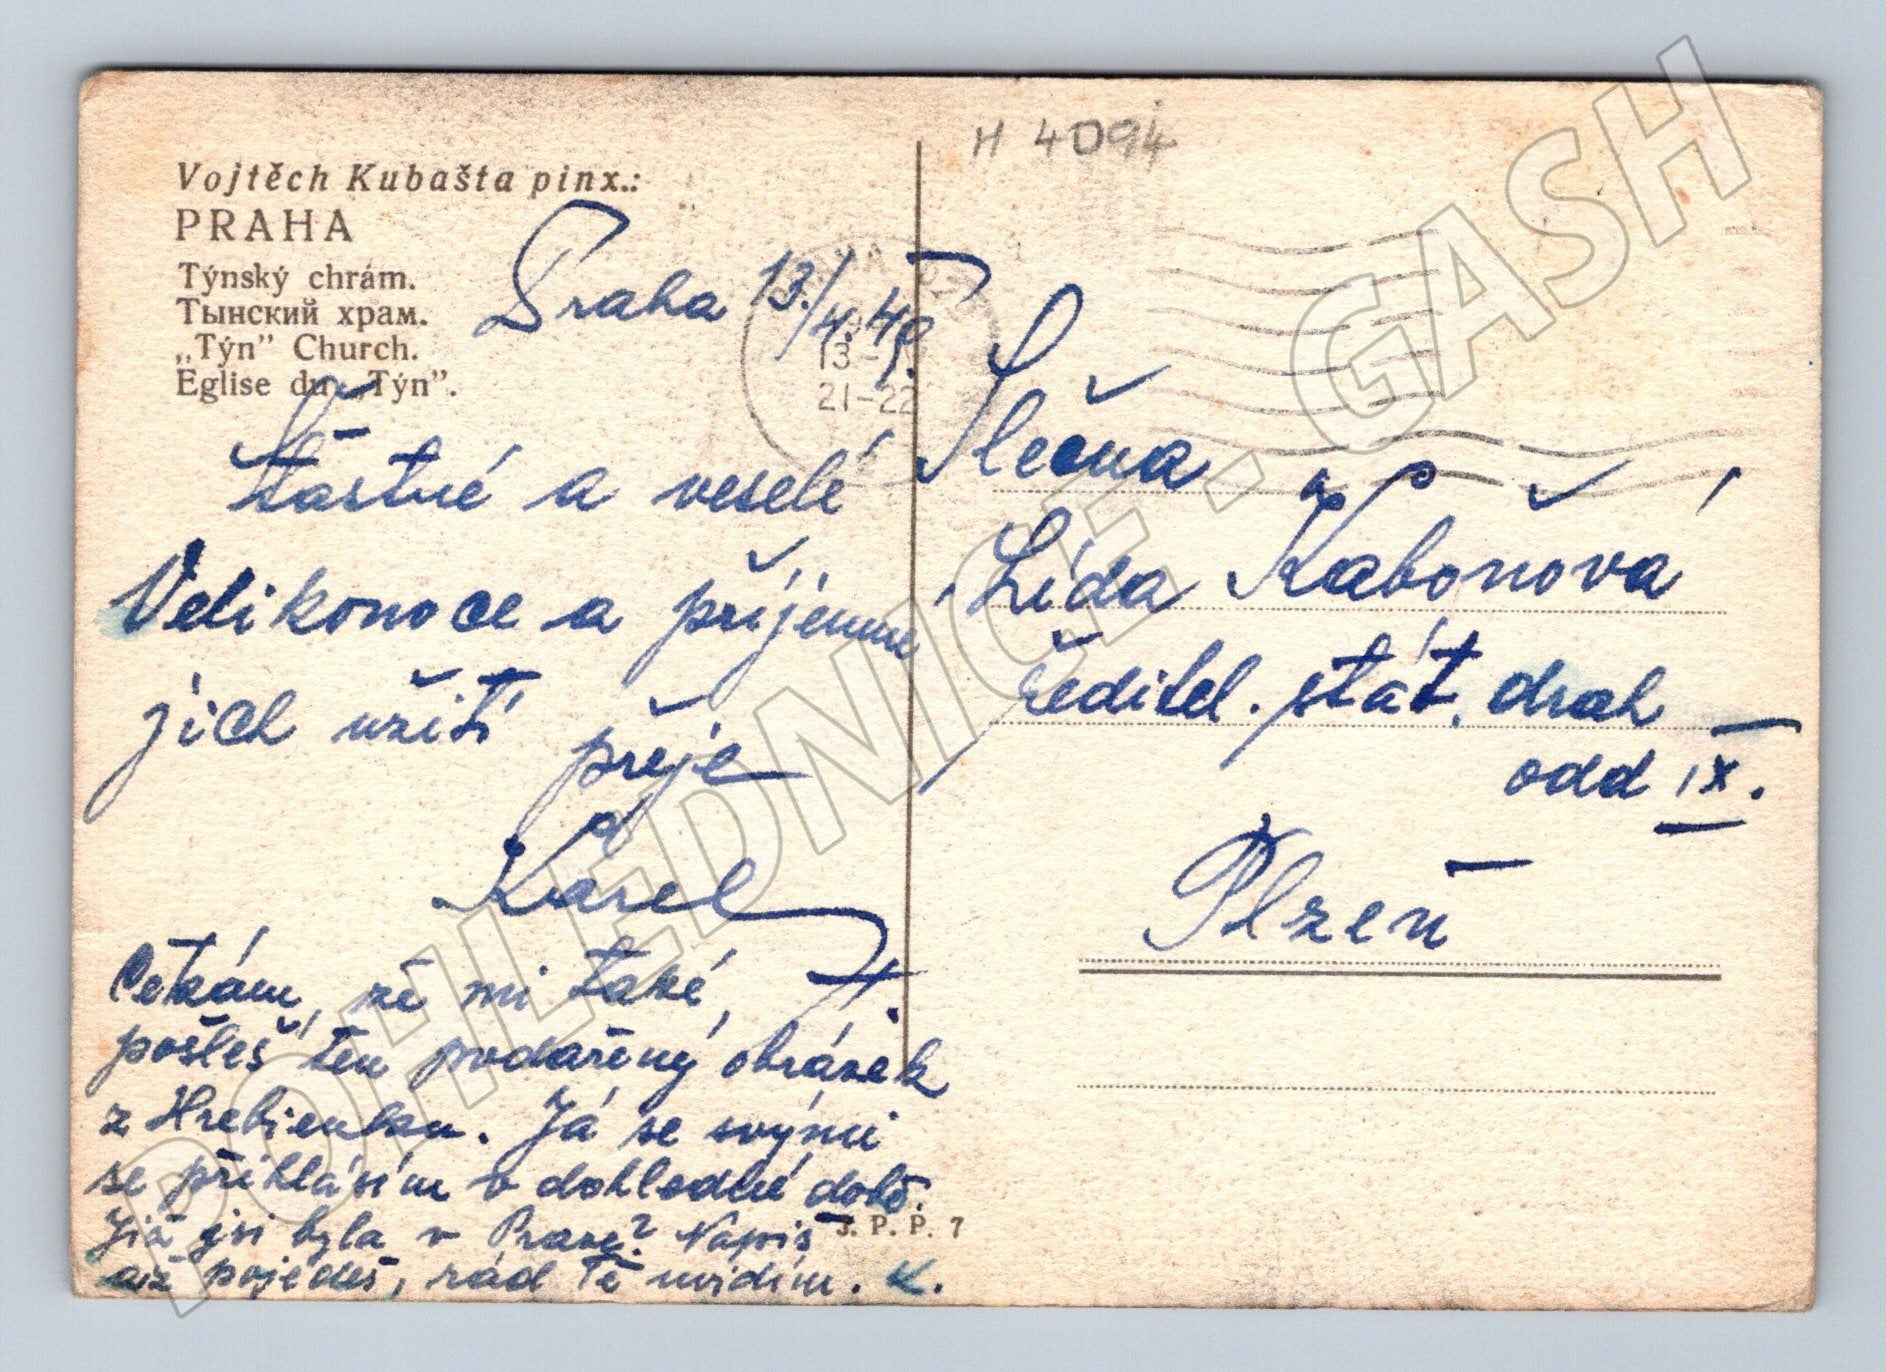 H 4094
Vojtěch Kubašta pinx.:
PRAHA
Týnský chrám.
Тынский храм.
„Týn” Church.
Eglise du „Týn”.
Praha 13./4.49.
PRAHA
13
21-22
Šťastné a veselé
Velikonoce a příjemné
jich užití
přeje
Karel
Čekám, že mi také,
pošleš ten podařený obrázek
z Hrebienku. Já se svými
se přihlásím v dohledné době.
Již jsi byla v Praze? Napiš
až pojedeš, rád Tě uvidím. K.
J. P. P. 7
Slečna
Lída Kaboňová
ředitel. stát. drah
odd IX.
Plzeň
POHLEDNICE.GASH